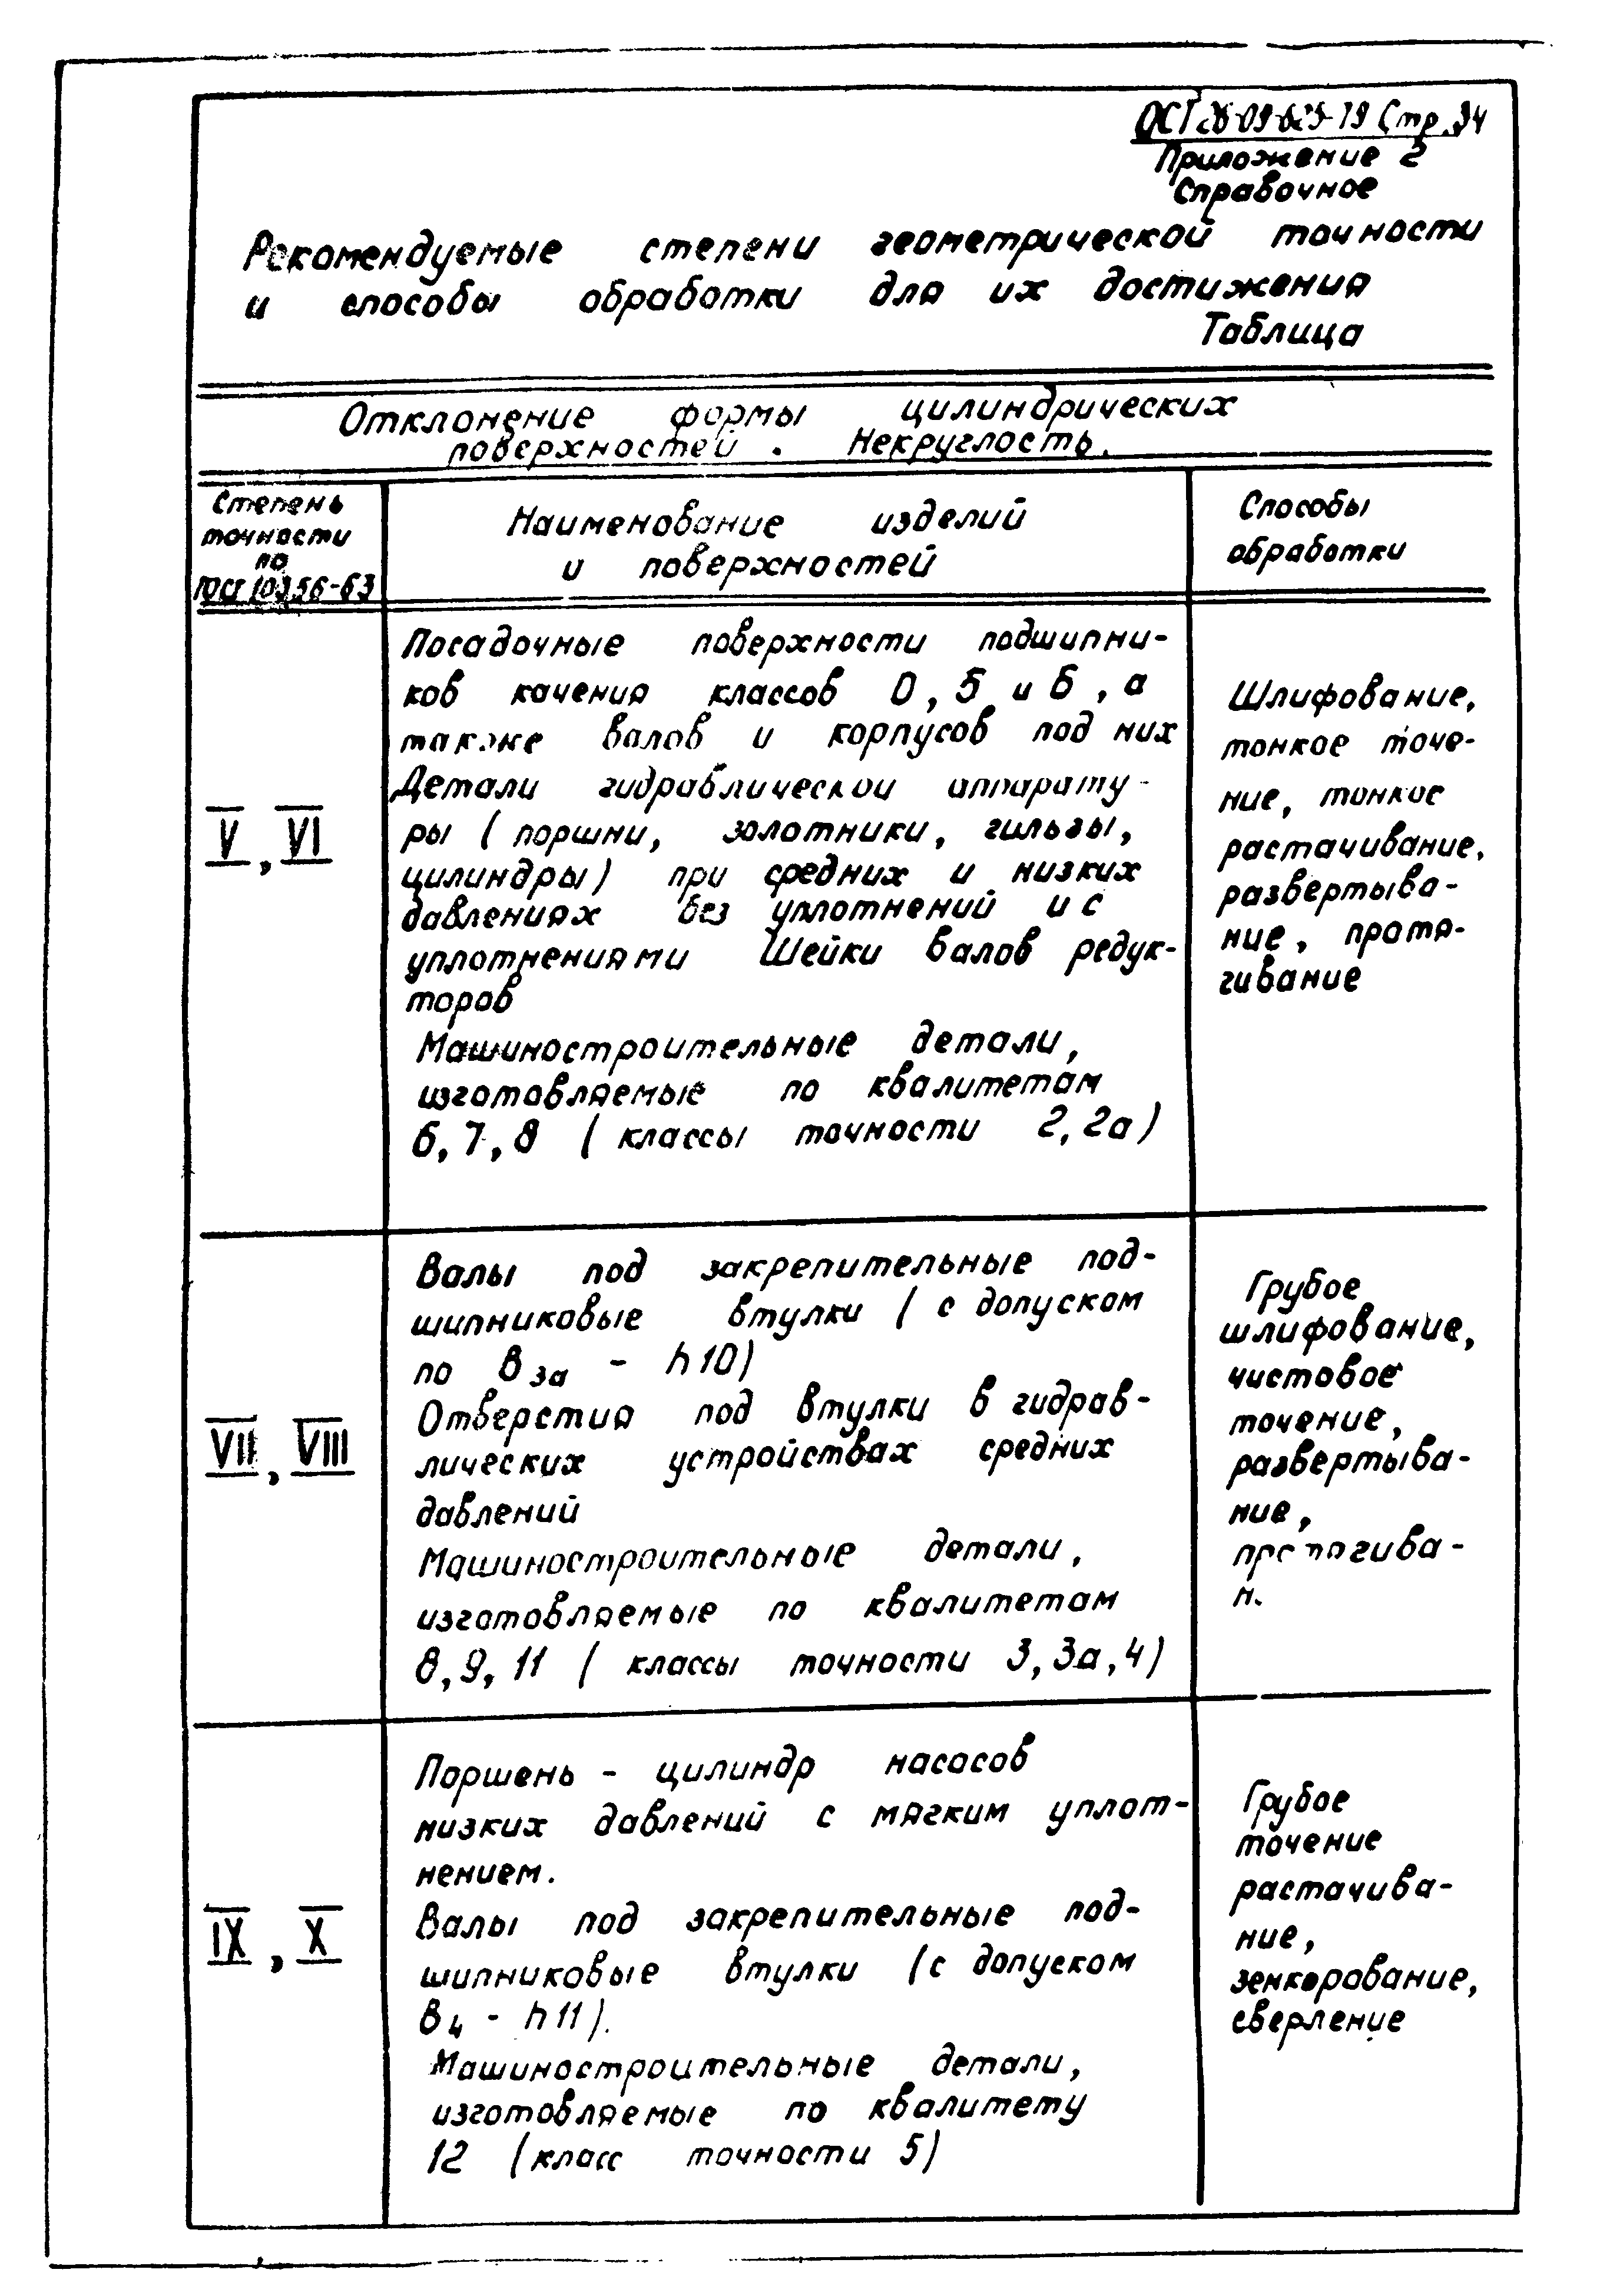 Стр. 34
Приложение 2
Справочное
Рекомендуемые степени геометрической точности
и способы обработки для их достижения
Таблица
Отклонение формы цилиндрических
поверхностей. Некруглость.
Степень
точности
по
ГОСТ 10356-63
Наименование изделий
и поверхностей
Способы
обработки
V, VI
Посадочные поверхности подшипни-
ков качения классов 0, 5 и 6, а
также валов и корпусов под них
Детали гидравлической аппарату-
ры (поршни, золотники, гильзы,
цилиндры) при средних и низких
давлениях без уплотнений и с
уплотнениями Шейки валов редук-
торов
Машиностроительные детали,
изготовляемые по квалитетам
6, 7, 8 (классы точности 2, 2а)
Шлифование,
тонкое точе-
ние, тонкое
растачивание,
развертыва-
ние, протя-
гивание
VII, VIII
Валы под закрепительные под-
шипниковые втулки (с допуском
по В3а - h10)
Отверстия под втулки в гидрав-
лических устройствах средних
давлений
Машиностроительные детали,
изготовляемые по квалитетам
8, 9, 11 (классы точности 3, 3а, 4)
Грубое
шлифование,
чистовое
точение,
развертыва-
ние,
протягива-
IX, X
Поршень - цилиндр насосов
низких давлений с мягким уплот-
нением.
Валы под закрепительные под-
шипниковые втулки (с допуском
В4 - h11).
Машиностроительные детали,
изготовляемые по квалитету
12 (класс точности 5)
Грубое
точение
растачива-
ние,
зенкерование,
сверление